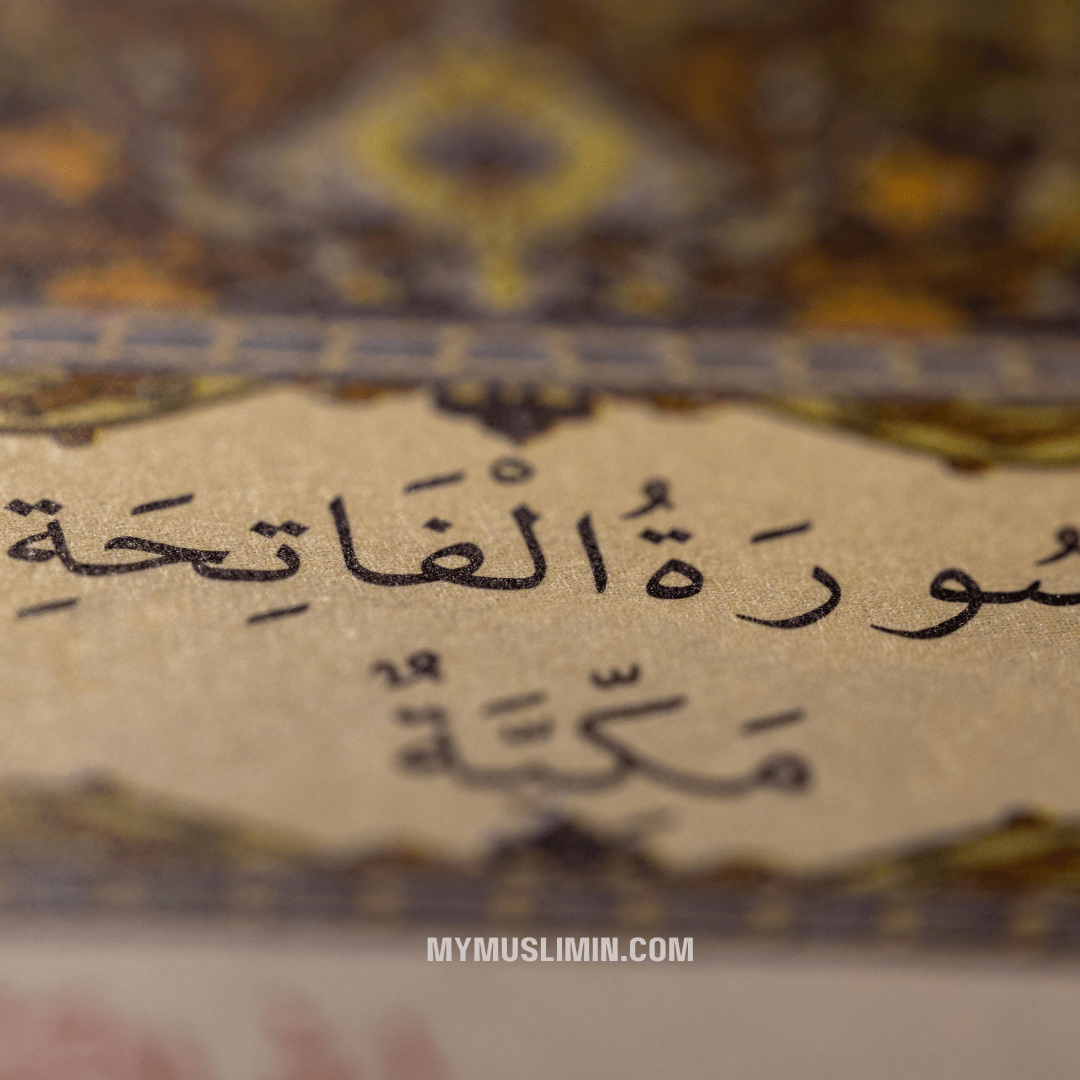 سُورَةُ الْفَاتِحَةِ
مَكِّيَّةٌ
MYMUSLIMIN.COM